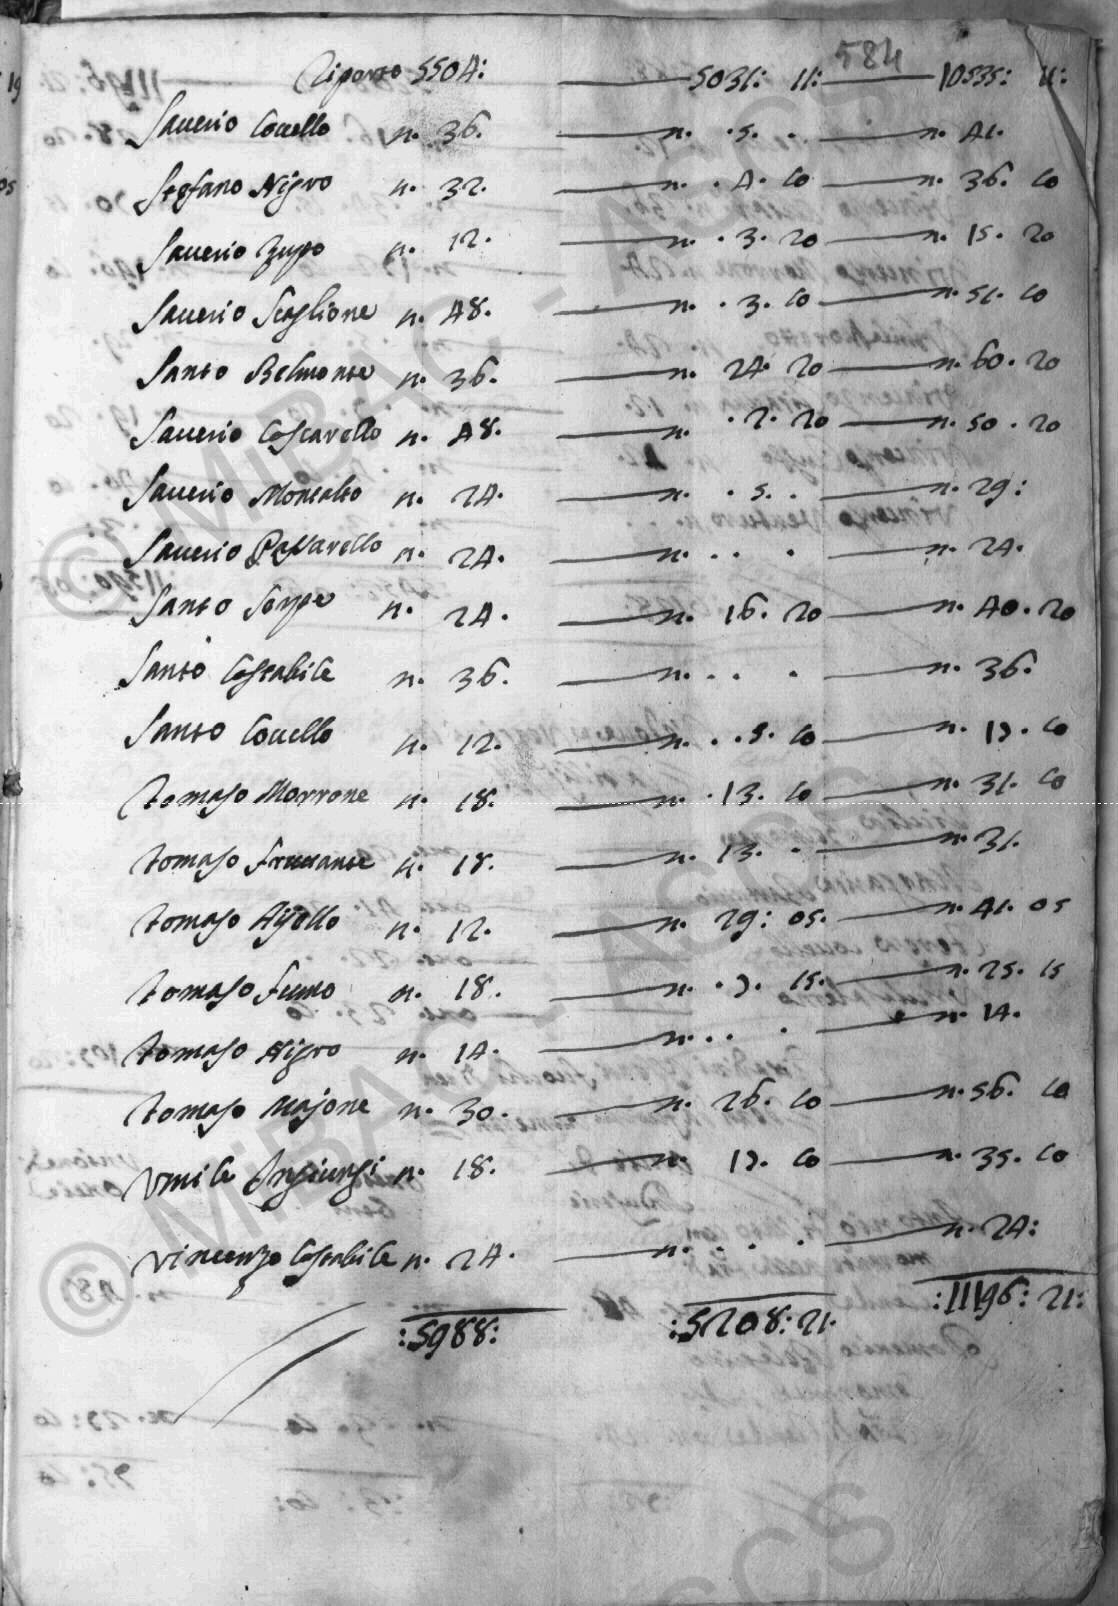 584
Riporto 5504: 5031: 11: 10535: 11:
Saverio Covello n. 36. n. . 5. . n. 41.
Stefano Nigro n. 32. n. . 4. 10 n. 36. 10
Saverio Zupo n. 12. n. . 3. 20 n. 15. 20
Saverio Scaglione n. 48. n. . 3. 10 n. 51. 10
Santo Belmonte n. 36. n. 24. 20 n. 60. 20
Saverio Coscarello n. 48. n. . 2. 20 n. 50. 20
Saverio Montalto n. 24. n. . 5. . n. 29:
Saverio Passarello n. 24. n. . . . n. 24.
Santo Serpe n. 24. n. 16. 20 n. 40. 20
Santo Costabile n. 36. n. . . . n. 36.
Santo Covello n. 12. n. . . 5. 10 n. 17. 10
Tomaso Morrone n. 18. n. . 13. 10 n. 31. 10
Tomaso n. 18. n. 13. . n. 31.
Tomaso Ajello n. 12. n. 29: 05. n. 41. 05
Tomaso Fumo n. 18. n. . 7. 15. n. 25. 15
Tomaso Nigro n. 14. n. . . . n. 14.
Tomaso Majone n. 30. n. 26. 10 n. 56. 10
Umile n. 18. n. 17. 10 n. 35. 10
Vincenzo Costabile n. 24. n. . . . n. 24:
:5988: :5208: 21. :11196: 21:
© MiBAC - ASCS
© MiBAC - ASCS
ASCS